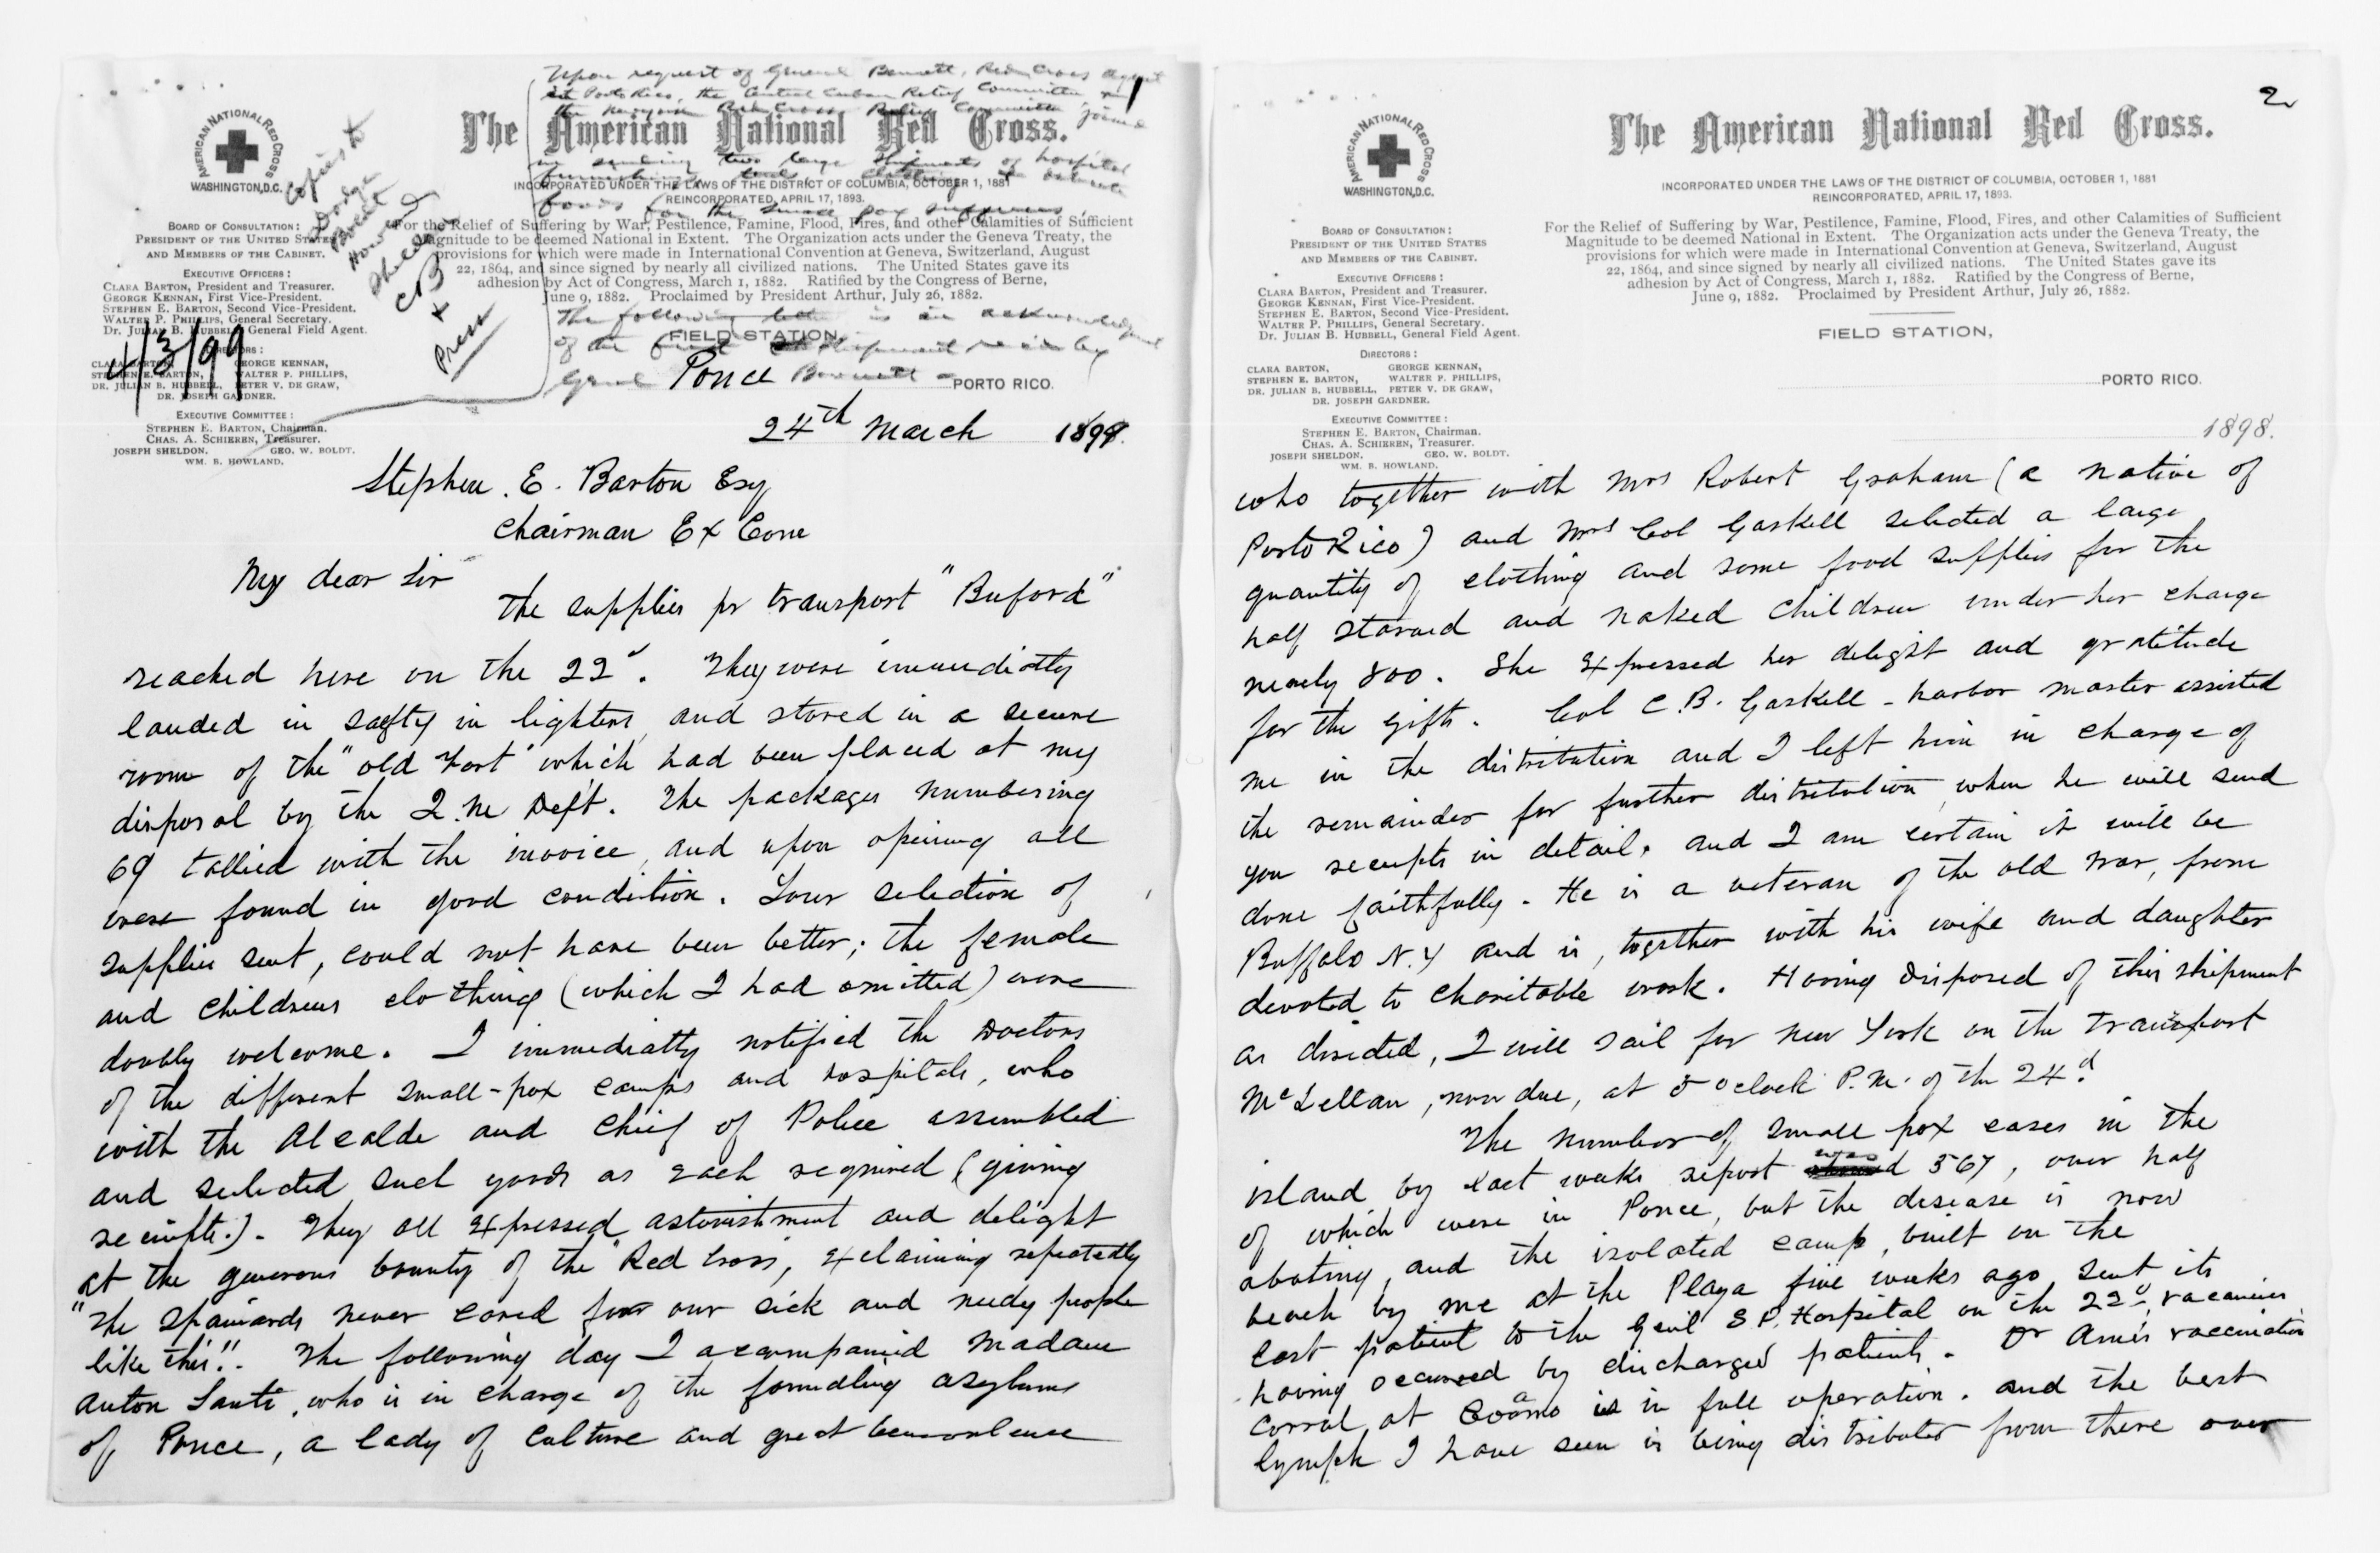 1
Upon request of General Bennett, Red Cross agent
at Porto Rico, the Central Cuban Relief Committee and
the New York Red Cross Relief Committee joined
in sending two large shipments of hospital
furnishings clothing & delicate
foods for the small pox sufferers.
The following letter is an acknowledgement
of the first shipment rec'd by
Genl Bennett
Copies to
Dodge
Boldt
Howard
Sheldon
CB
+
Press
4/3/99
AMERICAN NATIONAL RED CROSS
WASHINGTON, D.C.
The American National Red Cross.
INCORPORATED UNDER THE LAWS OF THE DISTRICT OF COLUMBIA, OCTOBER 1, 1881
REINCORPORATED, APRIL 17, 1893.
For the Relief of Suffering by War, Pestilence, Famine, Flood, Fires, and other Calamities of Sufficient
Magnitude to be deemed National in Extent. The Organization acts under the Geneva Treaty, the
provisions for which were made in International Convention at Geneva, Switzerland, August
22, 1864, and since signed by nearly all civilized nations. The United States gave its
adhesion by Act of Congress, March 1, 1882. Ratified by the Congress of Berne,
June 9, 1882. Proclaimed by President Arthur, July 26, 1882.
BOARD OF CONSULTATION:
PRESIDENT OF THE UNITED STATES
AND MEMBERS OF THE CABINET.
EXECUTIVE OFFICERS:
CLARA BARTON, President and Treasurer.
GEORGE KENNAN, First Vice-President.
STEPHEN E. BARTON, Second Vice-President.
WALTER P. PHILLIPS, General Secretary.
Dr. JULIAN B. HUBBELL, General Field Agent.
DIRECTORS:
CLARA BARTON, GEORGE KENNAN,
STEPHEN E. BARTON, WALTER P. PHILLIPS,
DR. JULIAN B. HUBBELL, PETER V. DE GRAW,
DR. JOSEPH GARDNER.
EXECUTIVE COMMITTEE:
STEPHEN E. BARTON, Chairman.
CHAS. A. SCHIEREN, Treasurer.
JOSEPH SHELDON. GEO. W. BOLDT.
WM. B. HOWLAND.
FIELD STATION,
Ponce PORTO RICO.
24th March 1899.
Stephen. E. Barton Esq
Chairman Ex Com
My dear Sir
The supplies pr transport "Buford"
reached here on the 22d. They were immediatly
landed in safty in lighters, and stored in a secure
room of the "old Fort" which had been placed at my
disposal by the Q.M Dept. The packages numbering
69 tallied with the invoice, and upon opening all
were found in good condition. Your selection of
supplies sent, could not have been better; the female
and childrens clothing (which I had omitted) were
doubly welcome. I immediatly notified the Doctors
of the different small-pox camps and hospitals, who
with the Alcalde and Chief of Police assembled
and selected such goods as each required (giving
reciepts.). They all expressed astonishment and delight
at the generous bounty of the "Red Cross", exclaiming repeatedly
"The Spaniards never cared for our sick and needy people
like this"! The following day I accompanied Madam
Anton Santi, who is in charge of the foundling asylums
of Ponce, a lady of culture and great benevolence
2
AMERICAN NATIONAL RED CROSS
WASHINGTON, D.C.
The American National Red Cross.
INCORPORATED UNDER THE LAWS OF THE DISTRICT OF COLUMBIA, OCTOBER 1, 1881
REINCORPORATED, APRIL 17, 1893.
For the Relief of Suffering by War, Pestilence, Famine, Flood, Fires, and other Calamities of Sufficient
Magnitude to be deemed National in Extent. The Organization acts under the Geneva Treaty, the
provisions for which were made in International Convention at Geneva, Switzerland, August
22, 1864, and since signed by nearly all civilized nations. The United States gave its
adhesion by Act of Congress, March 1, 1882. Ratified by the Congress of Berne,
June 9, 1882. Proclaimed by President Arthur, July 26, 1882.
BOARD OF CONSULTATION:
PRESIDENT OF THE UNITED STATES
AND MEMBERS OF THE CABINET.
EXECUTIVE OFFICERS:
CLARA BARTON, President and Treasurer.
GEORGE KENNAN, First Vice-President.
STEPHEN E. BARTON, Second Vice-President.
WALTER P. PHILLIPS, General Secretary.
Dr. JULIAN B. HUBBELL, General Field Agent.
DIRECTORS:
CLARA BARTON, GEORGE KENNAN,
STEPHEN E. BARTON, WALTER P. PHILLIPS,
DR. JULIAN B. HUBBELL, PETER V. DE GRAW,
DR. JOSEPH GARDNER.
EXECUTIVE COMMITTEE:
STEPHEN E. BARTON, Chairman.
CHAS. A. SCHIEREN, Treasurer.
JOSEPH SHELDON. GEO. W. BOLDT.
WM. B. HOWLAND.
FIELD STATION,
PORTO RICO.
1898.
who together with Mrs Robert Graham (a native of
Porto Rico) and Mrs Col Gaskell selected a large
quantity of clothing and some food supplies for the
half starved and naked children under her charge
nearly 800. She expressed her delight and gratitude
for the gifts. Col C.B. Gaskell - harbor master assisted
me in the distribution and I left him in charge of
the remainder for further distribution, when he will send
you reciepts in detail, and I am certain it will be
done faithfully. He is a veteran of the old war, from
Buffalo N.Y and is, together with his wife and daughter
devoted to charitable work. Having disposed of this shipment
as directed, I will sail for New York on the transport
McLellan, now due, at 5 oclock P.M. of the 24d.
The number of small pox cases in the
island by last weeks report was 567, over half
of which were in Ponce, but the disease is now
abating, and the isolated camp, built on the
beach by me at the Playa five weeks ago, sent its
last patient to the Genl S.P. Hospital on the 22d, vacancies
having occurred by discharged patients. Dr Ames vaccination
corral at Coamo is in full operation. and the best
lymph I have seen is being distributed from there over